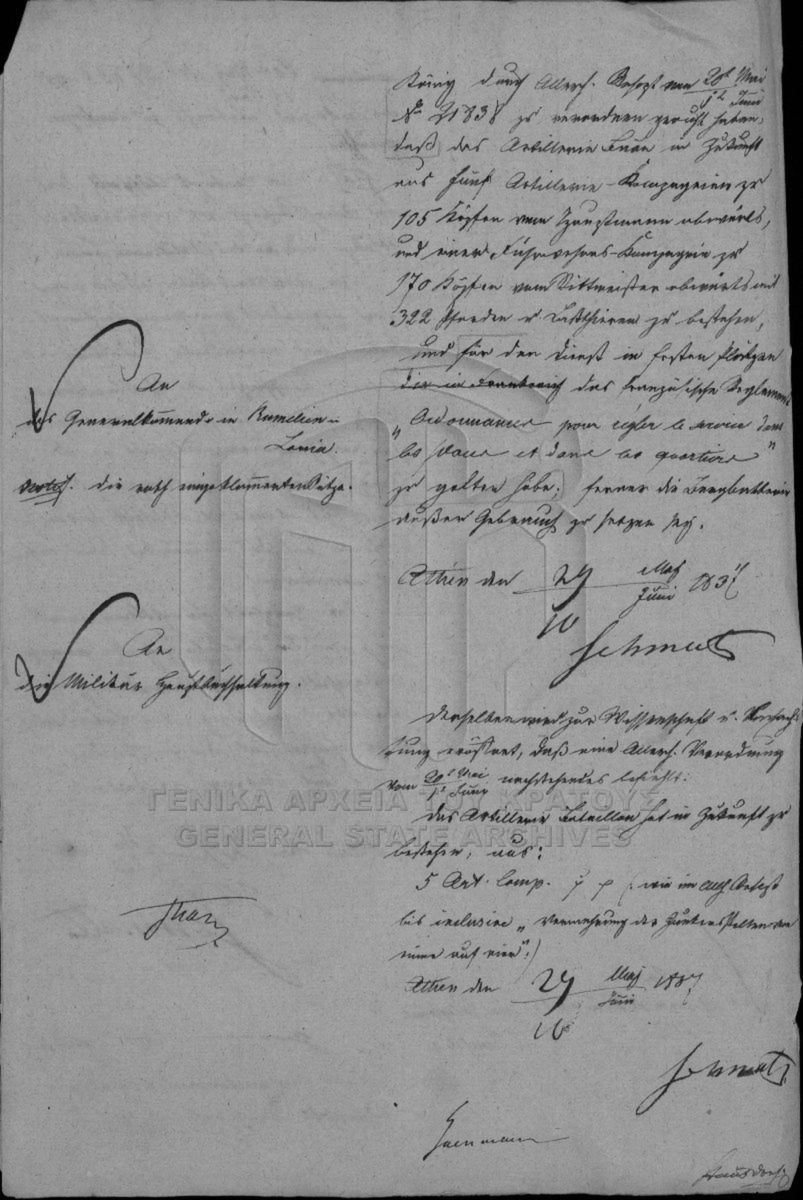 König durch Allerh. Befehl vom 20t Mai
1t Juni
No 21838 zu verordnen geruht haben,
daß das Artillerie in Zukunft
aus fünf Artillerie-Kompagnien zu
105 Köpfen vom Hauptmann abwärts,
und einer Fuhrwesens-Kompagnie zu
170 Köpfen vom Rittmeister abwärts mit
322 Pferden u Lastthieren zu bestehen,
und für den Dienst in festen Plätzen
das französische Reglement
"Ordonnance pour régler le service dans
les places et dans les quartiers"
zu gelten habe; ferner die
außer Gebrauch zu setzen sey.
Athen den 29 Mai 1837
10 Juni
Schmaltz
An
das Generalkommando in Rumelien
Lamia.
die roth eingeklammerten Sätze.
An
die Militär Hauptbuchhaltung.
Derselben wird zur Wissenschaft u.
eröffnet, daß eine Allerh. Verordnung
vom 20t Mai nachstehendes befiehlt:
1t Juny
Das Artillerie Bataillon hat in Zukunft zu
bestehen, aus:
5 Art. Comp. (: wie im
bis inclusive "Vermehrung der
auf vier":)
Athen den 29 Mai 1837
10 Juni
Schmaltz
ΓΕΝΙΚΑ ΑΡΧΕΙΑ ΤΟΥ ΚΡΑΤΟΥΣ
GENERAL STATE ARCHIVES